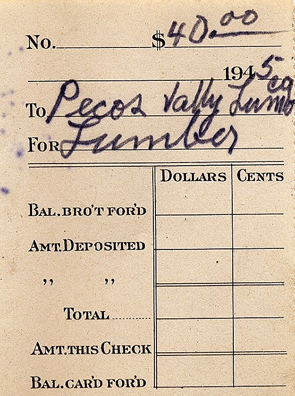 No. $40.00
1945
To Pecos Vally Lumb co
For Lumber
DOLLARS CENTS
BAL. BRO'T FOR'D
AMT. DEPOSITED
„ „
TOTAL
AMT. THIS CHECK
BAL. CAR'D FOR'D